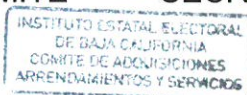 INSTITUTO ESTATAL ELECTORAL
DE BAJA CALIFORNIA
COMITE DE ADQUISICIONES
ARRENDAMIENTOS Y SERVICIOS